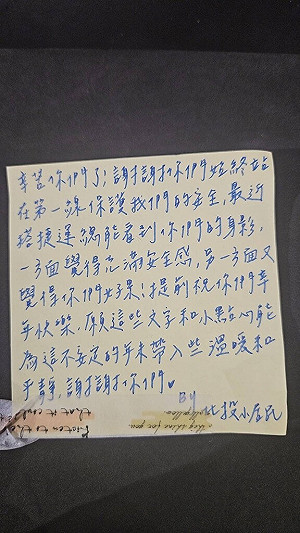 辛苦你們了！謝謝你們始終站
在第一線保護我們的安全，最近
搭捷運總能看到你們的身影，
一方面覺得充滿安全感，另一方面又
覺得你們好累！提前祝你們新
年快樂，願這些文字和小點心能
為這不安定的年末帶入些溫暖和
平靜，謝謝你們♥
BY 北投小居民